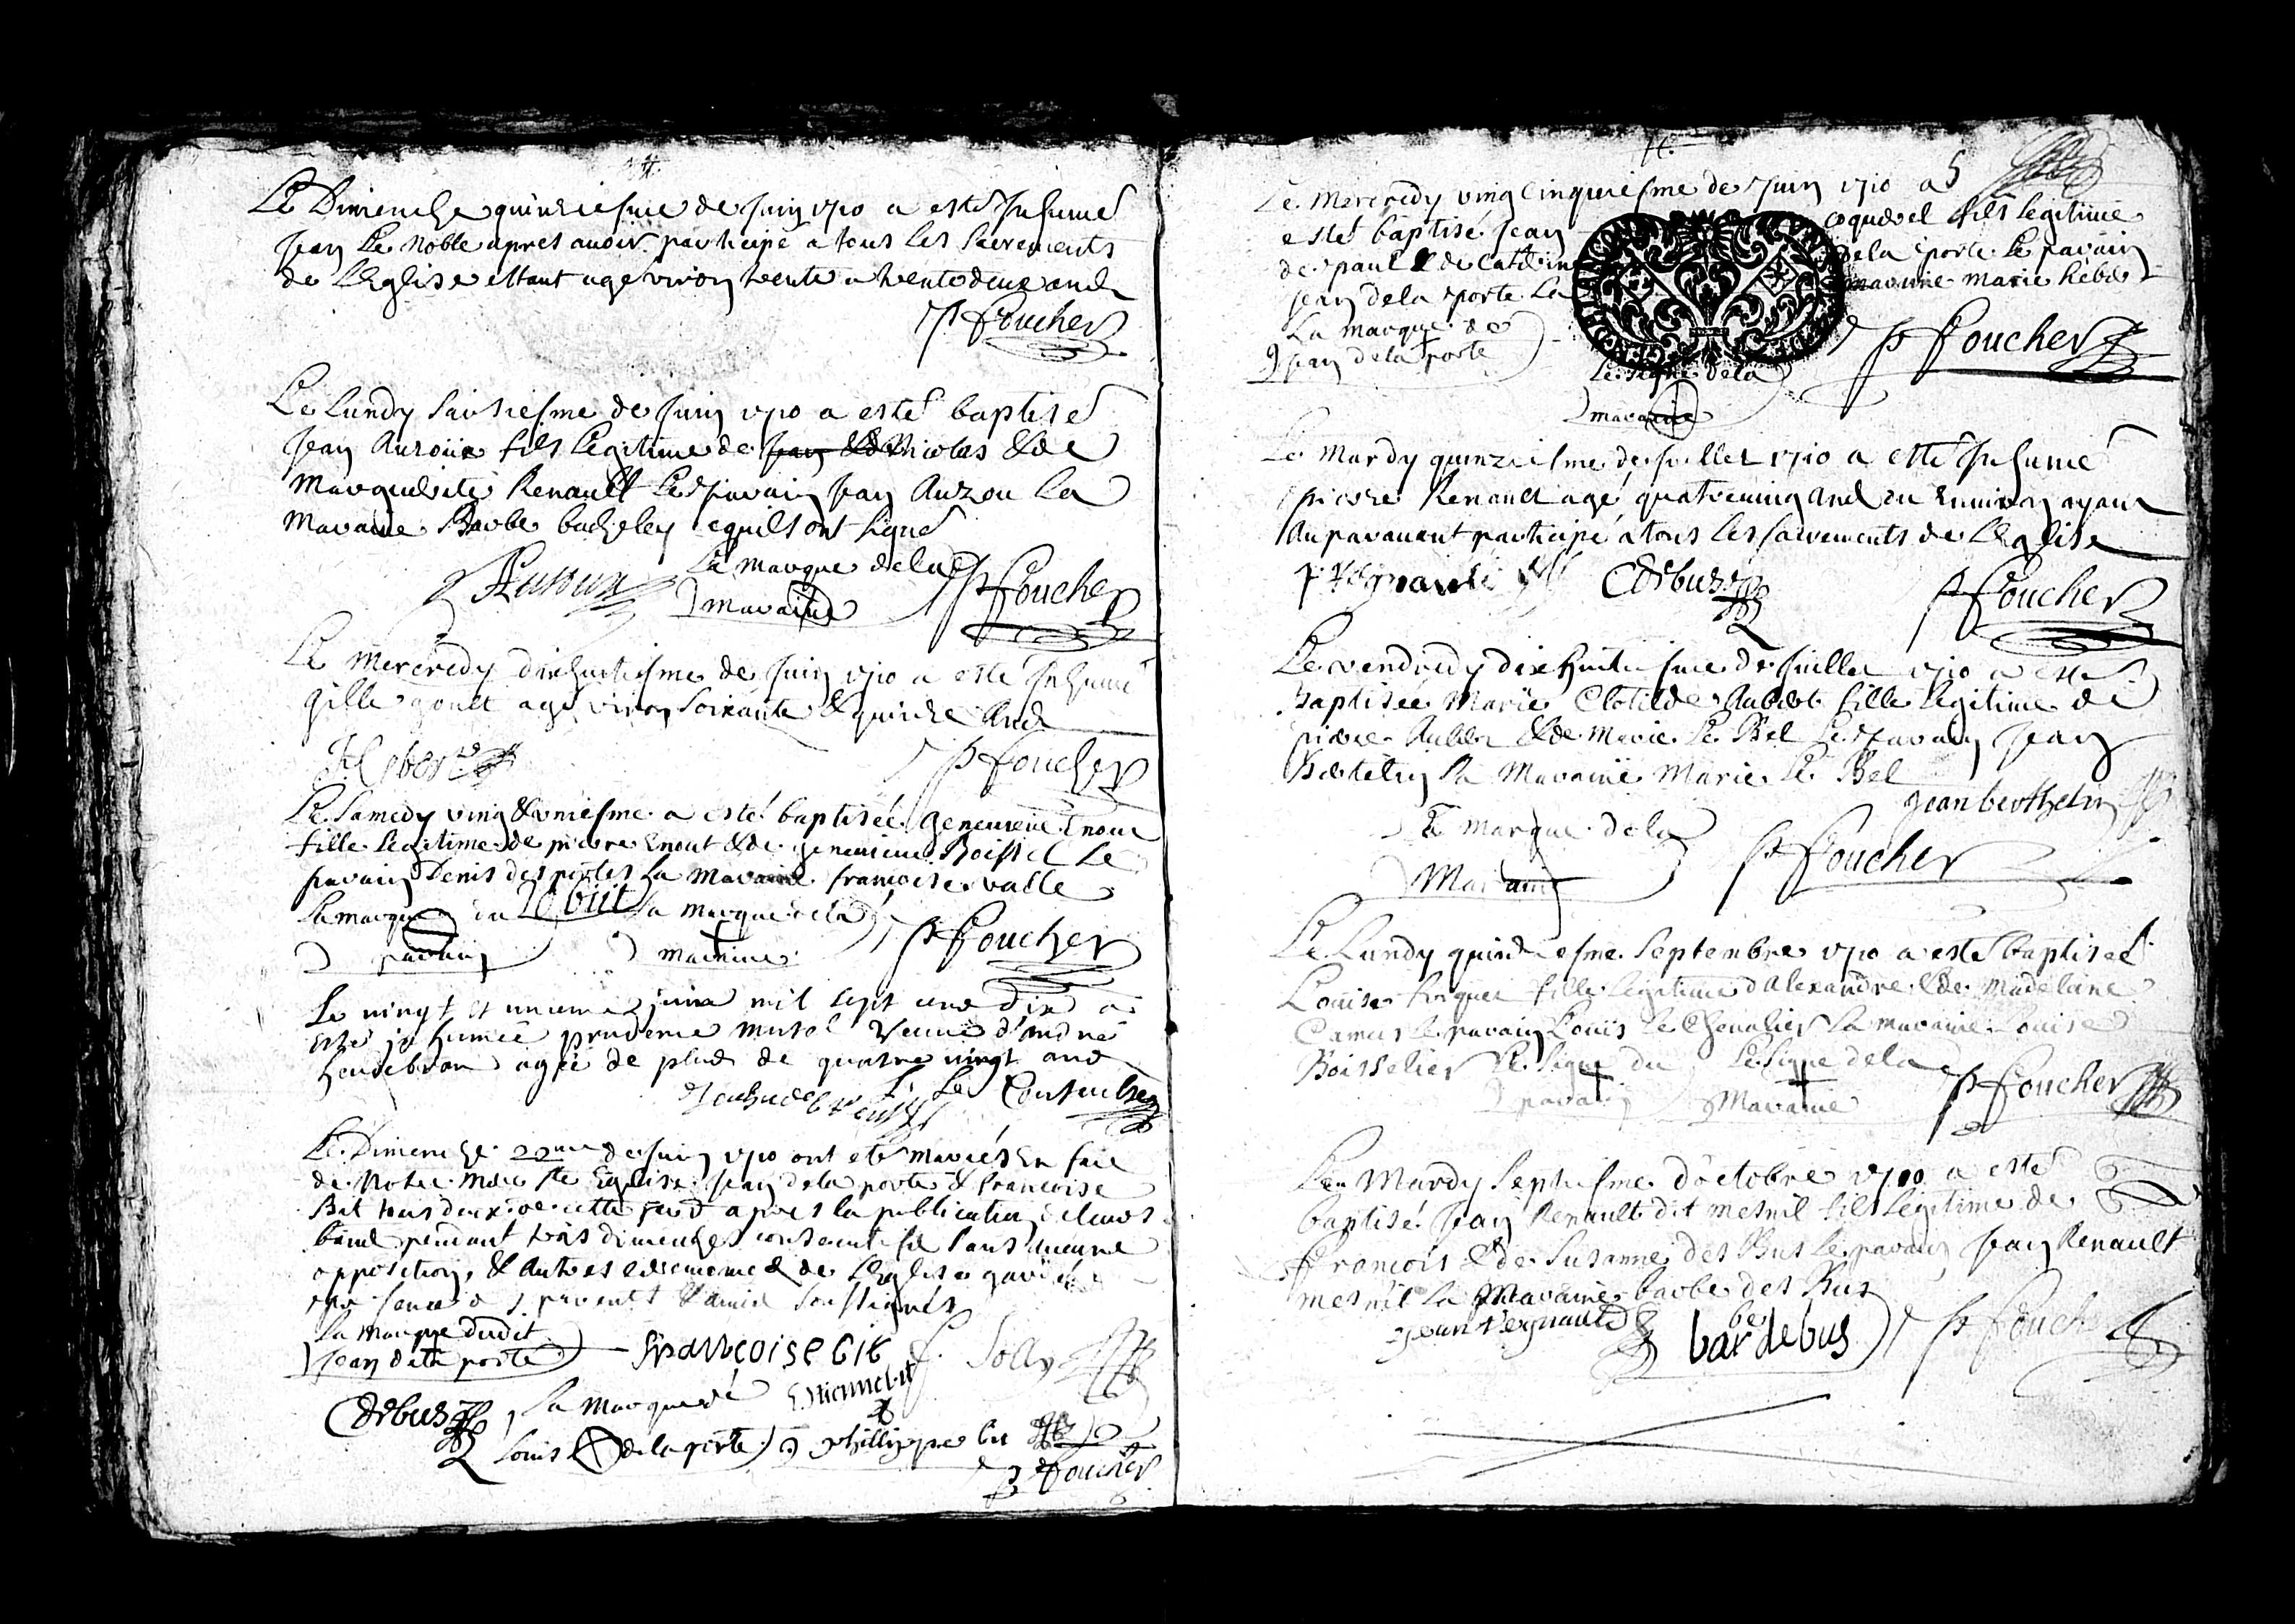 Le Dimenche quinziesme de Juin 1710 a esté Inhumé
Jean Le Noble apres avoir participé a tous les sacrements
de L'Eglise estant agé viron trente a trente deux ans
P Foucher
Le Lundy saiziesme de Juin 1710 a esté baptisé
Jean fils legitime de Jean & de Nicolas & de
Marguerite Renault Le parain Jean Auzou la
Maraine Barbe bacheley qu'ils ont signé
La marque de la
maraine
P Foucher
Le Mercredy dixhuitiesme de Juin 1710 a esté Inhumé
Gille agé viron soixante & quinze ans
P Foucher
Le Samedy vingt & uniesme a esté baptisée Genevieve Enout
fille legitime de pierre Enout & de genevieve Boissel Le
parain Denis des portes La maraine françoise vatte
La marque du la marque de la
parain maraine
P Foucher
Le vingt et uniemme juin mil sept cens dix a
esté inhumée prudence veuve d'André
heudebran agée de plus de quatre vingt ans
Le Dimenche 22me de Juin 1710 ont eté mariés en face
de Notre Mere Ste Eglise Jean de la porte & Francoise
Bit tous deux de cette apres la publication de leurs
bans pendant trois dimenches consecutifs sans aucune
opposition, & autres ceremonies de L'Eglise gardées
en presence de parents & amis soussignés
La marque dudit
Jean de la porte
françoise bit
debus
la marque de
Louis de la porte
phillippe bit
P Foucher
Le Mercredy vingt cinquiesme de Juin 1710 a 5
esté baptisé Jean coquerel fils legitime
de paul & de Catherine de la porte Le parain
Jean de la porte La maraine Marie hebert
La marque de
Jean de la porte
Le signe de la
maraine
P Foucher
Le Mardy quinziesme de Juillet 1710 a esté Inhumé
pierre Renault agé quatrevingt ans ou environ ayant
auparavant participé a tous les sacrements de L'Eglise
debus
P Foucher
Le vendredy dix huitiesme de Juillet 1710 a esté
Baptisée Marie Clotilde Auber fille legitime de
pierre Auber & de Marie Le Bel Le parain Jean
Bertelin La Maraine Marie Le Bel
Jean berthelin
La marque de la
Maraine
P Foucher
Le Lundy quinziesme Septembre 1710 a esté baptisée
Louise fille legitime d'Alexandre & de Madelaine
Camus Le parain Louis Le Chevalier La maraine Louise
Boisselier Le signe du Le signe de la
parain Maraine
P Foucher
Le Mardy septiesme d'octobre 1710 a esté
baptisé Jean Renault dit mesnil fils legitime de
François & de Susanne des Bus Le parain Jean Renault
mesnil La Maraine barbe des Bus
Jean Regnault
barbe debus
P Foucher